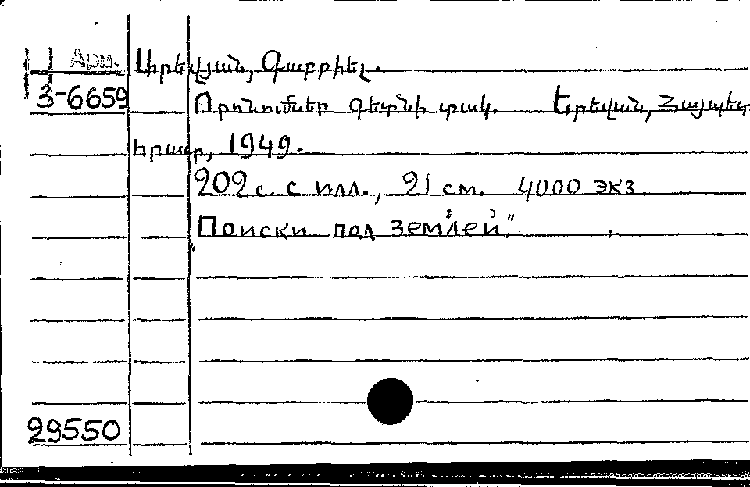 Арм. Սիրեկյան, Գաբրիել.
3-6659 Որոնումներ գետնի տակ. Երեվան, Հայպետ
հրատ, 1949.
202 с. с илл., 21 см. 4000 экз.
"Поиски под землей"
29550